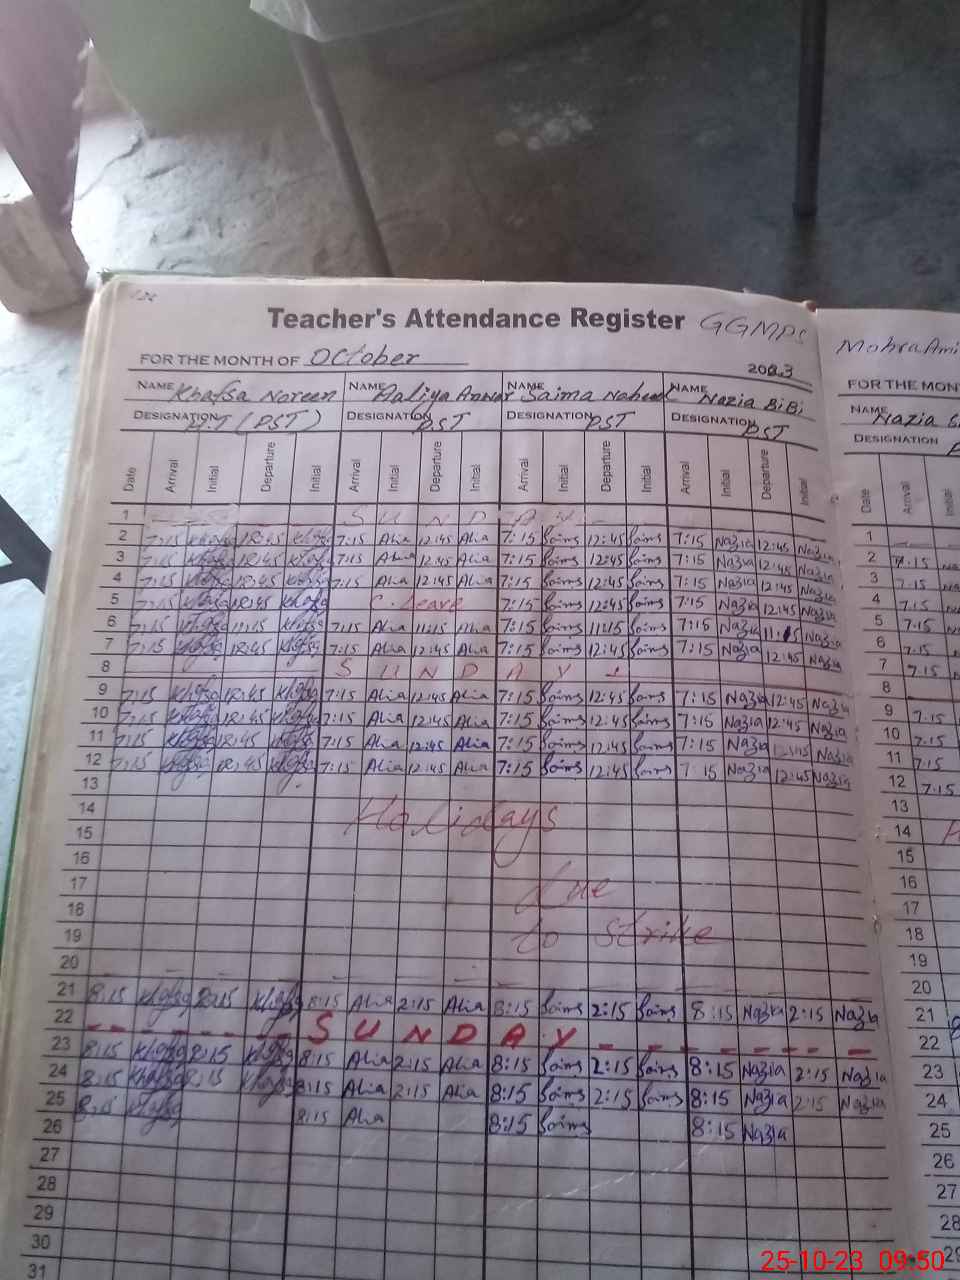 Teacher's Attendance Register GGMPS
FOR THE MONTH OF October 2023
NAME Khafsa Noreen NAME Aaliya Anwar NAME Saima Naheed NAME Nazia BiBi
DESIGNATION (PST) DESIGNATION PST PST DESIGNATION PST
Date Arrival Initial Departure Initial Arrival Initial Departure Initial Arrival Initial Departure Initial Arrival Initial Departure Initial
1 SUNDAY
2 7:15 Khafsa 12:45 Khafsa 7:15 Alia 12:45 Alia 7:15 Saima 12:45 Saima 7:15 Nazia 12:45 Nazia
3 7:15 Khafsa 12:45 Khafsa 7:15 Alia 12:45 Alia 7:15 Saima 12:45 Saima 7:15 Nazia 12:45 Nazia
4 7:15 Khafsa 12:45 Khafsa 7:15 Alia 12:45 Alia 7:15 Saima 12:45 Saima 7:15 Nazia 12:45 Nazia
5 7:15 Khafsa 12:45 Khafsa C. Leave 7:15 Saima 12:45 Saima 7:15 Nazia 12:45 Nazia
6 7:15 Khafsa 11:15 Khafsa 7:15 Alia 11:15 Alia 7:15 Saima 11:15 Saima 7:15 Nazia 11:15 Nazia
7 7:15 Khafsa 12:45 Khafsa 7:15 Alia 12:45 Alia 7:15 Saima 12:45 Saima 7:15 Nazia 12:45 Nazia
8 SUNDAY
9 7:15 Khafsa 12:45 Khafsa 7:15 Alia 12:45 Alia 7:15 Saima 12:45 Saima 7:15 Nazia 12:45 Nazia
10 7:15 Khafsa 12:45 Khafsa 7:15 Alia 12:45 Alia 7:15 Saima 12:45 Saima 7:15 Nazia 12:45 Nazia
11 7:15 Khafsa 12:45 Khafsa 7:15 Alia 12:45 Alia 7:15 Saima 12:45 Saima 7:15 Nazia 12:45 Nazia
12 7:15 Khafsa 12:45 Khafsa 7:15 Alia 12:45 Alia 7:15 Saima 12:45 Saima 7:15 Nazia 12:45 Nazia
13
14 Holidays
15
16
17 due
18
19 to strike
20
21 8:15 Khafsa 2:15 Khafsa 8:15 Alia 2:15 Alia 8:15 Saima 2:15 Saima 8:15 Nazia 2:15 Nazia
22 SUNDAY
23 8:15 Khafsa 2:15 Khafsa 8:15 Alia 2:15 Alia 8:15 Saima 2:15 Saima 8:15 Nazia 2:15 Nazia
24 8:15 Khafsa 2:15 Khafsa 8:15 Alia 2:15 Alia 8:15 Saima 2:15 Saima 8:15 Nazia 2:15 Nazia
25 8:15 Khafsa 8:15 Alia 8:15 Saima 8:15 Nazia
26
27
28
29
30
31
Mohra Ami
FOR THE MON
NAME Nazia S
DESIGNATION
Date Arrival Initial
1
2 7:15
3 7:15
4 7:15
5 7:15
6 7:15
7 7:15
8
9 7:15
10 7:15
11 7:15
12 7:15
13
14
15
16
17
18
19
20
21
22
23
24
25
26
27
28
29
25-10-23 09:50